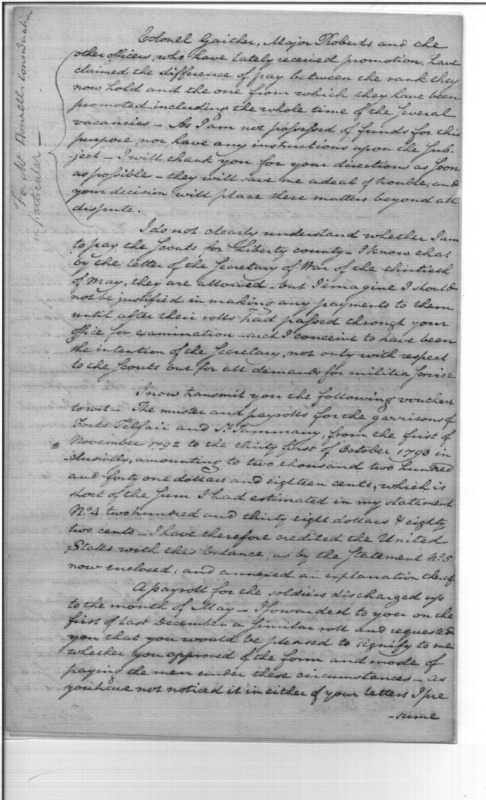 To Mr Howell, consideration
in particular —
Colonel Gaither, Major Roberts and the
other officers, who have lately received promotion, have
claimed the difference of pay between the rank they
now hold and the one from which they have been
promoted including the whole time of the several
vacancies — As I am not possessed of funds for this
purpose, nor have any instructions upon the Sub-
ject — I will thank you for your directions as soon
as possible — they will save me a deal of trouble, and
your decision will place these matters beyond all
dispute.
I do not clearly understand whether I am
to pay the Scouts for Liberty county — I know that
by the letter of the Secretary of War of the thirtieth
of May, they are allowed — but I imagine I should
not be justified in making any payments to them
until after their rolls had passed through your
office for examination — such I conceive to have been
the intention of the Secretary, not only with respect
to the Scouts but for all demands for militia service
I now transmit you the following vouchers
towit — The muster and payrolls for the garrisons of
Forts Telfair and St Tammany, from the first of
November 1792 to the thirty first of October 1793 in
clusively, amounting to two thousand two hundred
and forty one dollars and eighteen cents, which is
short of the Sum I had estimated in my statement
No 4 two hundred and thirty eight dollars & eighty
two cents — I have therefore credited the United
States with this balance, as by the Statement No 5
now enclosed, and annexed an explanation thereof
A payroll for the soldiers discharged up
to the month of May — I forwarded to you on the
first of last December a similar roll and requested
you that you would be pleased to signify to me
whether you approved of the form and mode of
paying the men under these circumstances — as
you have not noticed it in either of your letters I pre
-sume